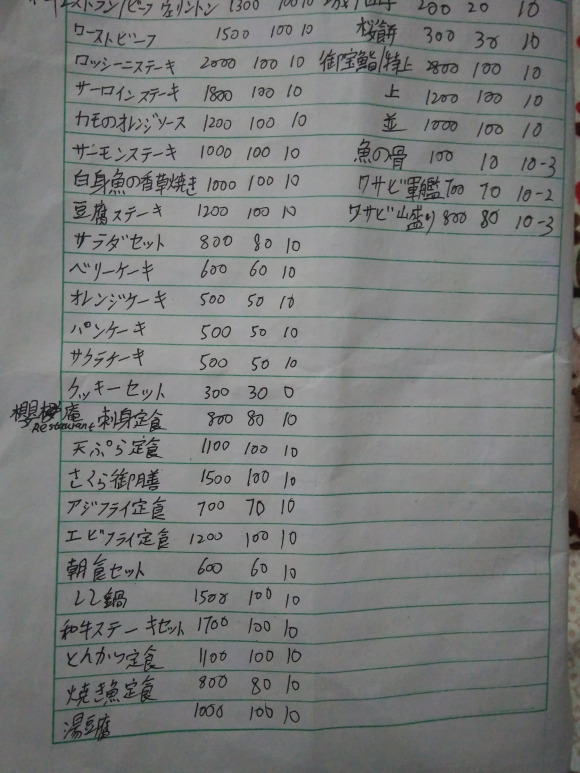 ストラン/ビーフウェリントン 1300 100 10
ローストビーフ 1500 100 10
ロッシーニステーキ 2000 100 10
サーロインステーキ 1800 100 10
カモのオレンジソース 1200 100 10
サーモンステーキ 1000 100 10
白身魚の香草焼き 1000 100 10
豆腐ステーキ 1200 100 10
サラダセット 800 80 10
ベリーケーキ 600 60 10
オレンジケーキ 500 50 10
パンケーキ 500 50 10
サクラケーキ 500 50 10
クッキーセット 300 30 0
櫻 庵 Restaurant 刺身定食 800 80 10
天ぷら定食 1100 100 10
さくら御膳 1500 100 10
アジフライ定食 700 70 10
エビフライ定食 1200 100 10
朝食セット 600 60 10
しし鍋 1500 100 10
和牛ステーキセット 1700 100 10
とんかつ定食 1100 100 10
焼き魚定食 800 80 10
湯豆腐 1000 100 10
200 20 10
桜餅 300 30 10
御宝鮨/特上 2800 100 10
上 1200 100 10
並 1000 100 10
魚の骨 100 10 10-3
ワサビ軍艦 700 70 10-2
ワサビ山盛り 800 80 10-3